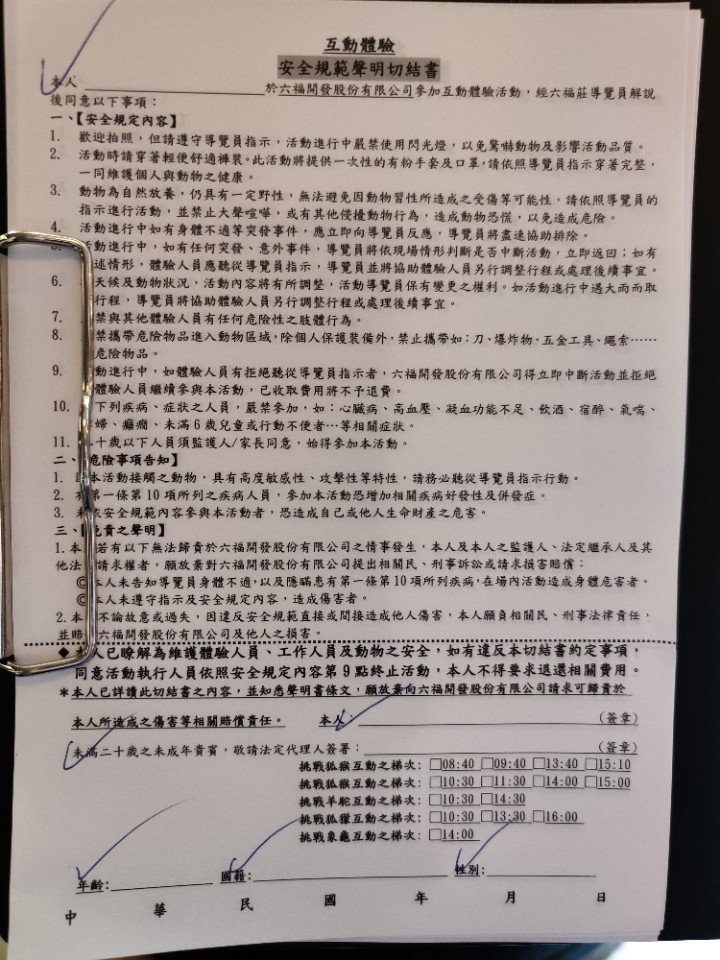 互動體驗
安全規範聲明切結書
本人 於六福開發股份有限公司參加互動體驗活動，經六福莊導覽員解說
後同意以下事項：
一、【安全規定內容】
1. 歡迎拍照，但請遵守導覽員指示，活動進行中嚴禁使用閃光燈，以免驚嚇動物及影響活動品質。
2. 活動時請穿著輕便舒適褲裝。此活動將提供一次性的有粉手套及口罩，請依照導覽員指示穿著完整，
一同維護個人與動物之健康。
3. 動物為自然放養，仍具有一定野性，無法避免因動物習性所造成之受傷等可能性，請依照導覽員的
指示進行活動，並禁止大聲喧嘩，或有其他侵擾動物行為，造成動物恐慌，以免造成危險。
4. 活動進行中如有身體不適等突發事件，應立即向導覽員反應，導覽員將盡速協助排除。
5. 動進行中，如有任何突發、意外事件，導覽員將依現場情形判斷是否中斷活動，立即返回；如有
述情形，體驗人員應聽從導覽員指示，導覽員並將協助體驗人員另行調整行程或處理後續事宜。
6. 天候及動物狀況，活動內容將有所調整，活動導覽員保有變更之權利。如活動進行中遇大雨而取
行程，導覽員將協助體驗人員另行調整行程或處理後續事宜。
7. 禁與其他體驗人員有任何危險性之肢體行為。
8. 禁攜帶危險物品進入動物區域，除個人保護裝備外，禁止攜帶如：刀、爆炸物、五金工具、繩索……
危險物品。
9. 動進行中，如體驗人員有拒絕聽從導覽員指示者，六福開發股份有限公司得立即中斷活動並拒絕
體驗人員繼續參與本活動，已收取費用將不予退費。
10. 下列疾病、症狀之人員，嚴禁參加，如：心臟病、高血壓、凝血功能不足、飲酒、宿醉、氣喘、
婦、癲癇、未滿6歲兒童或行動不便者…等相關症狀。
11. 十歲以下人員須監護人/家長同意，始得參加本活動。
二、危險事項告知】
1. 本活動接觸之動物，具有高度敏感性、攻擊性等特性，請務必聽從導覽員指示行動。
2. 第一條第10項所列之疾病人員，參加本活動恐增加相關疾病好發性及併發症。
3. 依安全規範內容參與本活動者，恐造成自己或他人生命財產之危害。
三、【免責之聲明】
1.本 若有以下無法歸責於六福開發股份有限公司之情事發生，本人及本人之監護人、法定繼承人及其
他法 請求權者。願放棄對六福開發股份有限公司提出相關民、刑事訴訟或請求損害賠償：
◎本人未告知導覽員身體不適，以及隱瞞患有第一條第10項所列疾病，在場內活動造成身體危害者。
◎本人未遵守指示及安全規定內容，造成傷害者。
2.本 不論故意或過失，因違反安全規範直接或間接造成他人傷害，本人願負相關民、刑事法律責任，
並賠 六福開發股份有限公司及他人之損害。
◆本人已瞭解為維護體驗人員、工作人員及動物之安全，如有違反本切結書約定事項，
同意活動執行人員依照安全規定內容第9點終止活動，本人不得要求退還相關費用。
＊本人已詳讀此切結書之內容，並知悉聲明書條文，願放棄向六福開發股份有限公司請求可歸責於
本人所造成之傷害等相關賠償責任。 本人： （簽章）
未滿二十歲之未成年貴賓，敬請法定代理人簽署： （簽章）
挑戰狐猴互動之梯次：□08:40 □09:40 □13:40 □15:10
挑戰狐猴互動之梯次：□10:30 □11:30 □14:00 □15:00
挑戰羊駝互動之梯次：□10:30 □14:30
挑戰狐獴互動之梯次：□10:30 □13:30 □16:00
挑戰象龜互動之梯次：□14:00
年齡： 國籍： 性別：
中 華 民 國 年 月 日